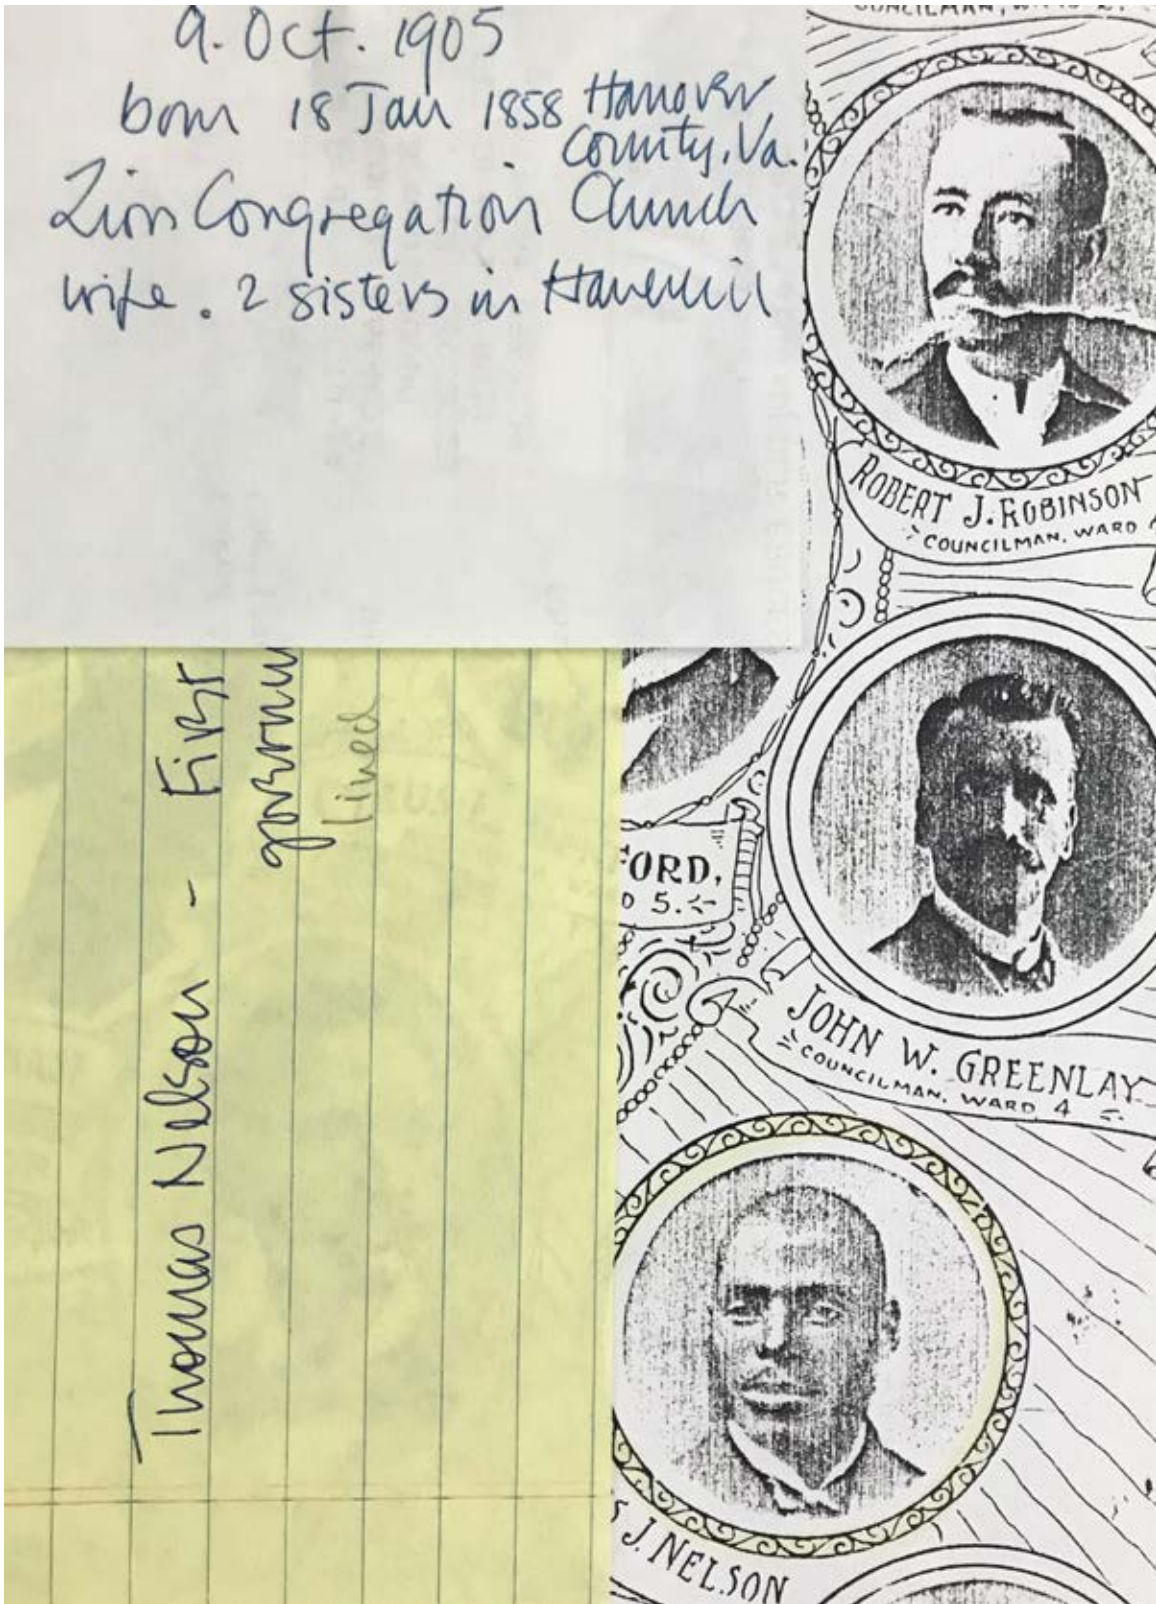 9. Oct. 1905
born 18 Jan 1858 Hanover
County, Va.
Zion Congregation Church
wife. 2 sisters in Haverhill
Thomas Nelson - First
governm
lined
COUNCILMAN, WARD 2.
ROBERT J. ROBINSON
COUNCILMAN, WARD
FORD,
D 5.
JOHN W. GREENLAY
COUNCILMAN, WARD 4
S J. NELSON